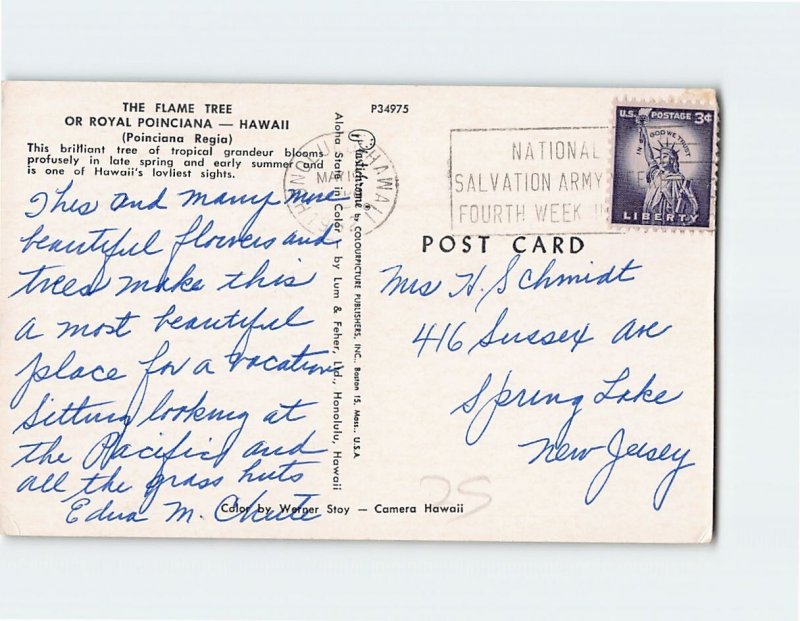 THE FLAME TREE
OR ROYAL POINCIANA — HAWAII
(Poinciana Regia)
This brilliant tree of tropical grandeur blooms
profusely in late spring and early summer and
is one of Hawaii's lovliest sights.
This and many more
beautiful flowers and
trees make this
a most beautiful
place for a vacation
Sitting looking at
the Pacific and
all the grass huts
Edna M.
Color by Werner Stoy — Camera Hawaii
Aloha State in Color by Lum & Feher, Ltd., Honolulu, Hawaii
Plastichrome ® by COLOURPICTURE PUBLISHERS, INC., Boston 15, Mass., U.S.A.
P34975
HAWAII
MAY
NATIONAL
SALVATION ARMY
FOURTH WEEK
U.S. POSTAGE 3¢
IN GOD WE TRUST
LIBERTY
POST CARD
Mrs H. Schmidt
416 Sussex Ave
Spring Lake
New Jersey
25